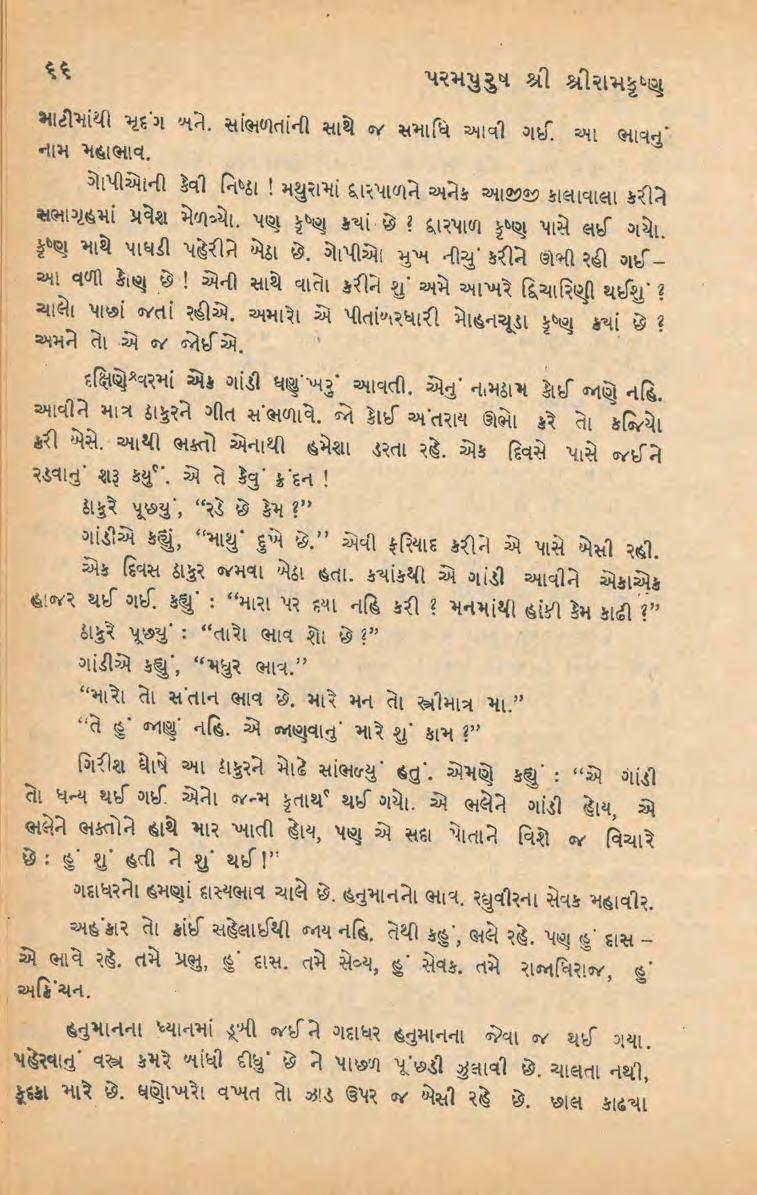 ૬૬
પરમપુરુષ શ્રી શ્રીરામકૃષ્ણ
માટીમાંથી મૃદંગ બને. સાંભળતાંની સાથે જ સમાધિ આવી ગઈ. આ ભાવનું
નામ મહાભાવ.
ગોપીઓની કેવી નિષ્ઠા ! મથુરામાં દ્વારપાળને અનેક આજીજી કાલાવાલા કરીને
સભાગૃહમાં પ્રવેશ મેળવ્યો. પણ કૃષ્ણ ક્યાં છે ? દ્વારપાળ કૃષ્ણ પાસે લઈ ગયો.
કૃષ્ણ માથે પાઘડી પહેરીને બેઠા છે. ગોપીઓ મુખ નીચું કરીને ઊભી રહી ગઈ –
આ વળી કોણ છે ! એની સાથે વાતો કરીને શું અમે આખરે દ્વિચારિણી થઈશું ?
ચાલો પાછાં જતાં રહીએ. અમારો એ પીતાંબરધારી મોહનચૂડા કૃષ્ણ ક્યાં છે ?
અમને તો એ જ જોઈએ.
દક્ષિણેશ્વરમાં એક ગાંડી ઘણુંખરું આવતી. એનું નામઠામ કોઈ જાણે નહિ.
આવીને માત્ર ઠાકુરને ગીત સંભળાવે. જો કોઈ અંતરાય ઊભો કરે તો કજિયો
કરી બેસે. આથી ભક્તો એનાથી હમેશા ડરતા રહે. એક દિવસે પાસે જઈને
રડવાનું શરૂ કર્યું. એ તે કેવું ક્રંદન !
ઠાકુરે પૂછયું, “રડે છે કેમ ?”
ગાંડીએ કહ્યું, “માથું દુખે છે.” એવી ફરિયાદ કરીને એ પાસે બેસી રહી.
એક દિવસ ઠાકુર જમવા બેઠા હતા. કયાંકથી એ ગાંડી આવીને એકાએક
હાજર થઈ ગઈ. કહ્યું : “મારા પર દયા નહિ કરી ? મનમાંથી હાંકી કેમ કાઢી ?”
ઠાકુરે પૂછયું : “તારો ભાવ શો છે ?”
ગાંડીએ કહ્યું, “મધુર ભાવ.”
“મારો તો સંતાન ભાવ છે. મારે મન તો સ્ત્રીમાત્ર મા.”
“તે હું જાણું નહિ. એ જાણવાનું મારે શું કામ ?”
ગિરીશ ઘોષે આ ઠાકુરને મોઢે સાંભળ્યું હતું. એમણે કહ્યું : “એ ગાંડી
તો ધન્ય થઈ ગઈ. એનો જન્મ કૃતાર્થ થઈ ગયો. એ ભલેને ગાંડી હોય, એ
ભલેને ભક્તોને હાથે માર ખાતી હોય, પણ એ સદા પોતાને વિશે જ વિચારે
છે : હું શું હતી ને શું થઈ !”
ગદાધરનો હમણાં દાસ્યભાવ ચાલે છે. હનુમાનનો ભાવ. રઘુવીરના સેવક મહાવીર.
અહંકાર તો કાંઈ સહેલાઈથી જાય નહિ. તેથી કહું, ભલે રહે. પણ હું દાસ –
એ ભાવે રહે. તમે પ્રભુ, હું દાસ. તમે સેવ્ય, હું સેવક. તમે રાજાધિરાજ, હું
અકિંચન.
હનુમાનના ધ્યાનમાં ડૂબી જઈને ગદાધર હનુમાનના જેવા જ થઈ ગયા.
પહેરવાનું વસ્ત્ર કમરે બાંધી દીધું છે ને પાછળ પૂંછડી ઝુલાવી છે. ચાલતા નથી,
કૂદકા મારે છે. ઘણોખરો વખત તો ઝાડ ઉપર જ બેસી રહે છે. છાલ કાઢયા